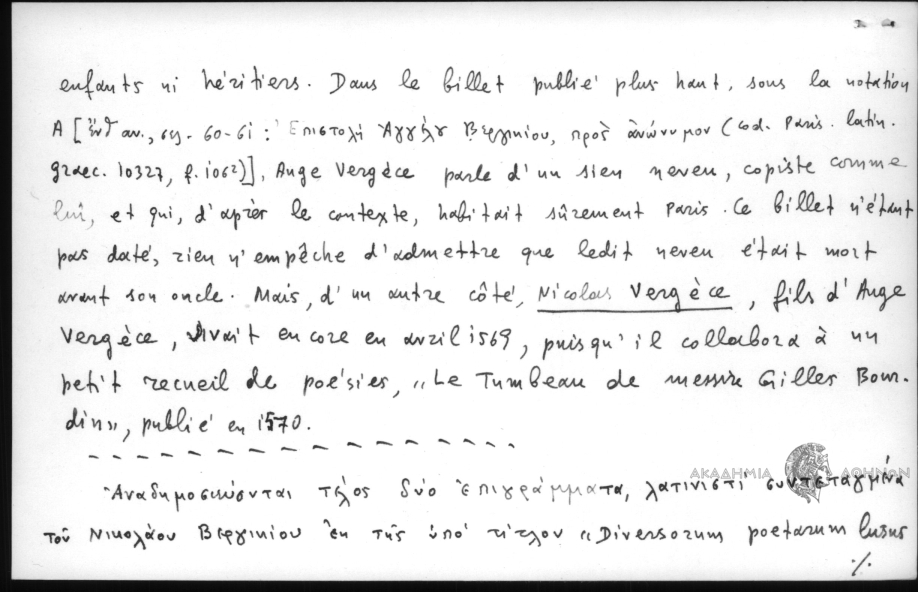 enfants ni héritiers. Dans le billet publié plus haut, sous la notation
A [ἔνθ αν., σσ. 60-61: Ἐπιστολὴ Ἀγγέλου Βεργικίου, πρὸς ἀνώνυμον (cod. Paris. latin.
graec. 10327, f. 106²)], Ange Vergèce parle d'un sien neveu, copiste comme
lui, et qui, d'après le contexte, habitait sûrement Paris. Ce billet n'étant
pas daté, rien n'empêche d'admettre que ledit neveu était mort
avant son oncle. Mais, d'un autre côté, Nicolas Vergèce, fils d'Ange
Vergèce, vivait encore en avril 1569, puisqu'il collabora à un
petit recueil de poésies, „Le Tumbeau de messire Gilles Bour-
din», publié en 1570.
Ἀναδημοσιεύονται τέλος δύο ἐπιγράμματα, λατινιστὶ συντεταγμένα
ΑΚΑΔΗΜΙΑ ΑΘΗΝΩΝ
τοῦ Νικολάου Βεργικίου ἐκ τῆς ὑπὸ τίτλον «Diversorum poetarum lusus
./.